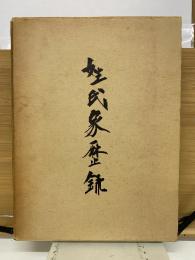 姓氏家歴録